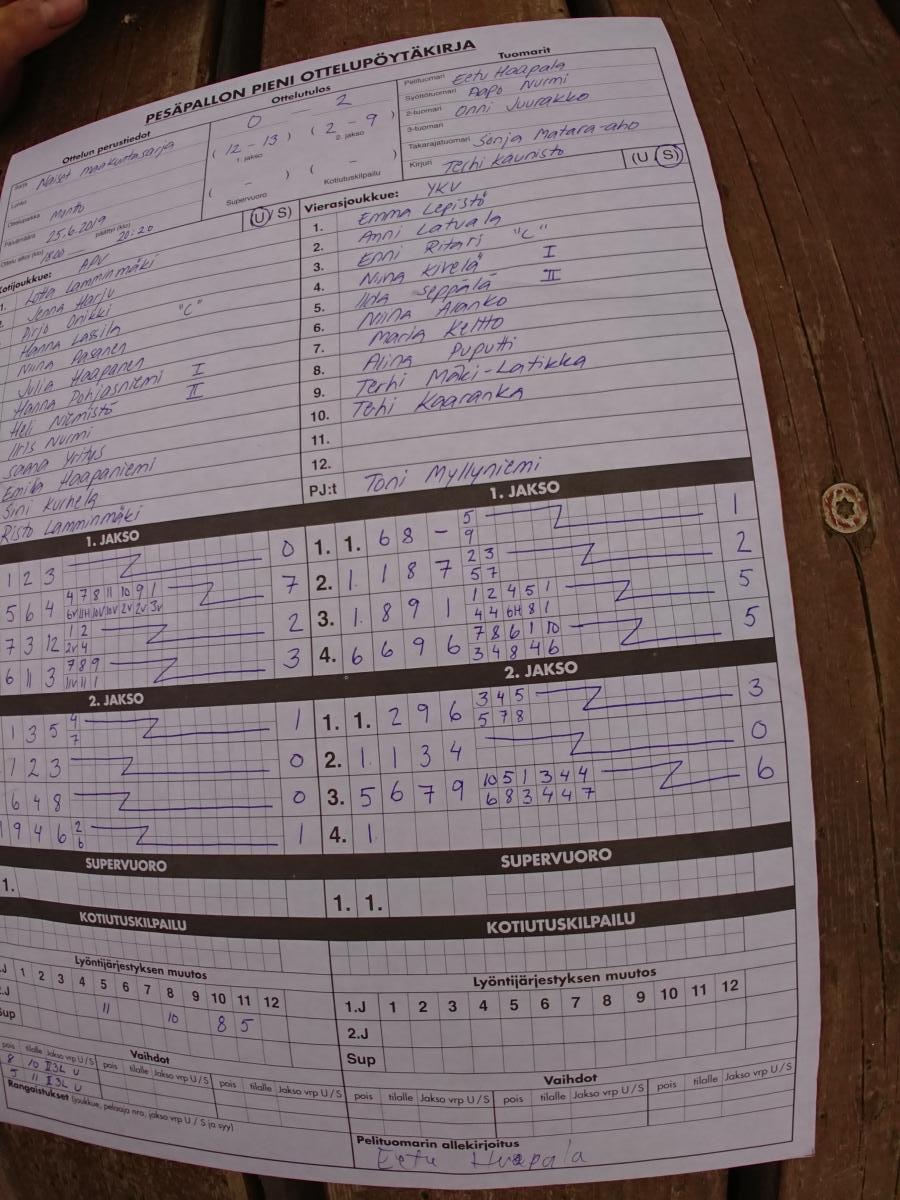 PESÄPALLON PIENI OTTELUPÖYTÄKIRJA
Ottelun perustiedot
Sarja Naiset maakuntasarja
Lohko
Ottelupaikka
Päivämäärä 25.6.2019
Ottelu alkoi (klo) 18:00 päättyi (klo) 20:20
Ottelutulos
0 – 2
( 12 – 13 ) ( 2 – 9 )
1. jakso 2. jakso
( – ) ( – )
Supervuoro Kotiutuskilpailu
Tuomarit
Pelituomari Eetu Haapala
Syöttötuomari Aapo Nurmi
2-tuomari Onni Juurakko
3-tuomari
Takarajatuomari Sonja Matara-aho
Kirjuri Terhi Kaunisto
Kotijoukkue: APV (U/S)
1. Lotta Lamminmäki
Jenna Harju
Pirjo Onikki
Hanna Lassila "C"
Niina Pasanen
Julia Haapanen
Hanna Pohjasniemi I
Heli Niemistö II
Iiris Nurmi
Saana Yritys
Emilia Haapaniemi
Sini Kurhela
Risto Lamminmäki
Vierasjoukkue: YKV (U/S)
1. Emma Lepistö
2. Anni Latvala
3. Enni Ritari "C"
4. Niina Kivelä I
5. Iida Seppälä II
6. Niina Alanko
7. Maria Keltto
8. Alina Puputti
9. Terhi Mäki-Latikka
10. Kaaranka
11.
12.
PJ:t Toni Myllyniemi
1. JAKSO
1 2 3 0
5 6 4 4 7 8 11 10 9 1 7
7 3 12 1 2 2
2v 4
6 1 3 7 8 9 3
2. JAKSO
1 3 5 4 1
7
1 2 3 0
6 4 8 0
1 9 4 6 2 1
6
SUPERVUORO
1.
KOTIUTUSKILPAILU
1. JAKSO
1. 1. 6 8 – 5 1
9
2. 1. 1 8 7 2 3 2
5 7
3. 1. 8 9 1 1 2 4 5 1 5
4 4 6H 8 1
4. 6 6 9 6 7 8 6 1 10 5
3 4 8 4 6
2. JAKSO
1. 1. 2 9 6 3 4 5 3
5 7 8
2. 1. 1 3 4 0
3. 5 6 7 9 10 5 1 3 4 4 6
6 8 3 4 4 7
4. 1.
SUPERVUORO
1. 1.
KOTIUTUSKILPAILU
Lyöntijärjestyksen muutos
1 2 3 4 5 6 7 8 9 10 11 12
11 10 8 5
Sup
Vaihdot
pois tilalle Jakso vrp U/S pois tilalle Jakso vrp U/S pois tilalle Jakso vrp U/S
8 10 II 3L U
5 11 II 3L U
Rangaistukset (joukkue, pelaaja nro, jakso vrp U / S ja syy)
Lyöntijärjestyksen muutos
1.J 1 2 3 4 5 6 7 8 9 10 11 12
2.J
Sup
Vaihdot
pois tilalle Jakso vrp U/S pois tilalle Jakso vrp U/S pois tilalle Jakso vrp U/S
Pelituomarin allekirjoitus
Eetu Haapala